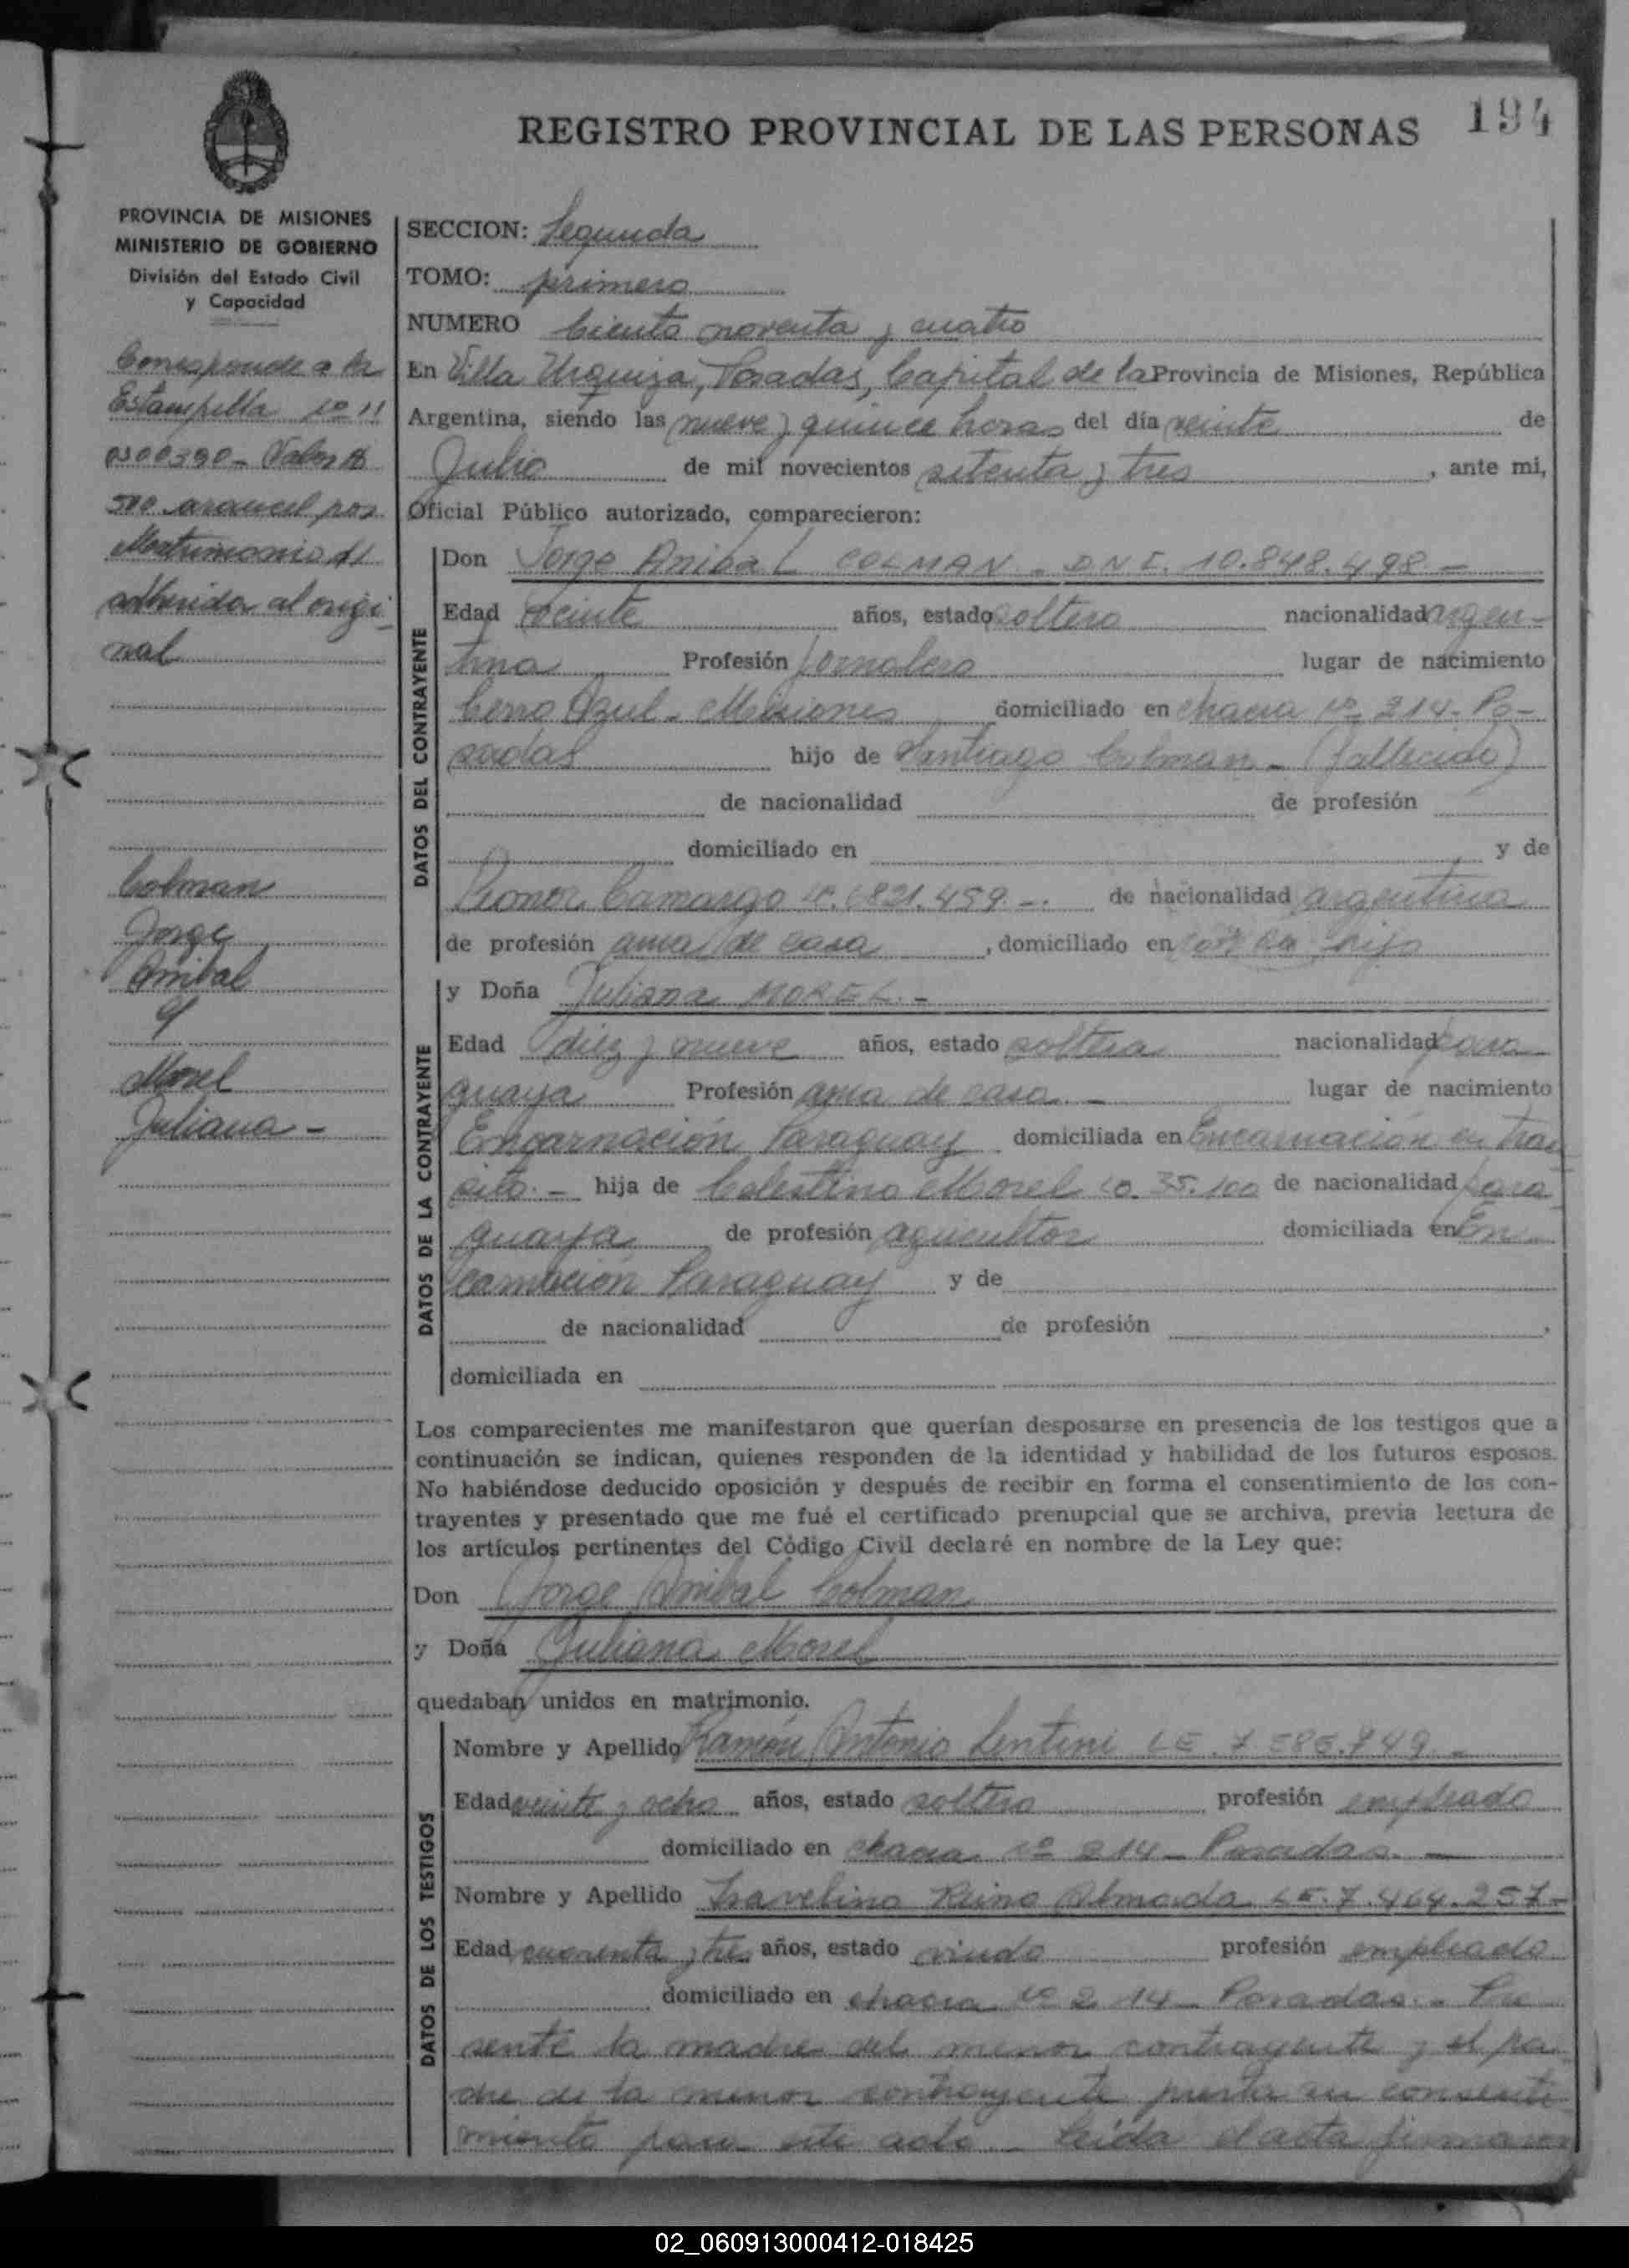 REGISTRO PROVINCIAL DE LAS PERSONAS 194
PROVINCIA DE MISIONES
MINISTERIO DE GOBIERNO
División del Estado Civil
y Capacidad
Corresponde a la
Estampilla nº 11
0300390 - Valor $
500 arancel por
Matrimonio
adherida al origi-
nal
Colman
Jorge
Anibal
y
Morel
Juliana -
SECCION: Segunda
TOMO: primero
NUMERO Ciento noventa y cuatro
En Villa Urquiza, Posadas, Capital de la Provincia de Misiones, República
Argentina, siendo las nueve y quince horas del día veinte de
Julio de mil novecientos setenta y tres, ante mi,
Oficial Público autorizado, comparecieron:
DATOS DEL CONTRAYENTE
Don Jorge Anibal COLMAN - DNI. 10.848.498 -
Edad veinte años, estado soltero nacionalidad argen-
tina Profesión Jornalero lugar de nacimiento
Cerro Azul - Misiones domiciliado en chacra nº 214 - Po-
sadas hijo de Santiago Colman - (fallecido)
de nacionalidad de profesión
domiciliado en y de
Leonor Camargo 6.821.459 - de nacionalidad argentina
de profesión ama de casa, domiciliado en con su hijo
DATOS DE LA CONTRAYENTE
y Doña Juliana MOREL. -
Edad diez y nueve años, estado soltera nacionalidad para
guaya Profesión ama de casa - lugar de nacimiento
Encarnación Paraguay domiciliada en Encarnación en tran
sito. - hija de Celestino Morel 35.100 de nacionalidad para
guaya de profesión agricultor domiciliada en En
carnación Paraguay y de
de nacionalidad de profesión ,
domiciliada en
Los comparecientes me manifestaron que querían desposarse en presencia de los testigos que a
continuación se indican, quienes responden de la identidad y habilidad de los futuros esposos.
No habiéndose deducido oposición y después de recibir en forma el consentimiento de los con-
trayentes y presentado que me fué el certificado prenupcial que se archiva, previa lectura de
los artículos pertinentes del Código Civil declaré en nombre de la Ley que:
Don Jorge Anibal Colman
y Doña Juliana Morel
quedaban unidos en matrimonio.
DATOS DE LOS TESTIGOS
Nombre y Apellido Ramón Antonio Lentini LE. 7.585.749 -
Edad veinte y ocho años, estado soltero profesión empleado
domiciliado en chacra nº 214 - Posadas. -
Nombre y Apellido Travelino Reino Almada LE. 7.464.257 -
Edad cuarenta y tres años, estado viudo profesión empleado
domiciliado en chacra nº 214 - Posadas. - Pre
sente la madre del menor contrayente y el pa
dre de la menor contrayente presta su consenti
miento para este acto. - Leída el acta firmaron
02_060913000412-018425